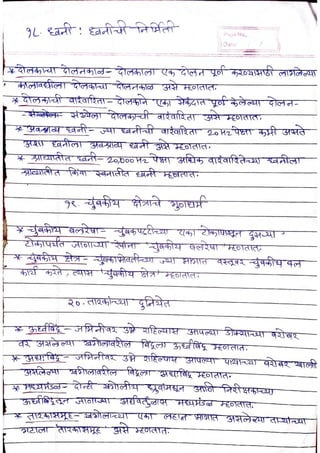 १८. ध्वनी : ध्वनीची निर्मिती
* दोलकाचा दोलनकाळ - दोलकाला एक दोलन पूर्ण करण्यासाठी लागलेल्या
कालावधीला दोलकाचा दोलनकाळ असे म्हणतात.
* दोलकाची वारंवारिता - दोलकाने एका सेकंदात पूर्ण केलेल्या दोलन-
संख्येला दोलकाची वारंवारिता असे म्हणतात.
* अवश्राव्य ध्वनी - ज्या ध्वनीची वारंवारिता 20Hz पेक्षा कमी असते
अशा ध्वनीला अवश्राव्य ध्वनी असे म्हणतात.
* श्राव्यातीत ध्वनी - 20,000Hz पेक्षा अधिक वारंवारितेच्या ध्वनीला
श्राव्यातीत किंवा स्वनातीत ध्वनी असे म्हणतात.
१९. चुंबकीय क्षेत्राचे गुणधर्म
* चुंबकीय बलरेषा - चुंबकपट्टीच्या एका टोकापासून दुसऱ्या
टोकापर्यंत जाणाऱ्या रेषांना 'चुंबकीय बलरेषा' म्हणतात.
* चुंबकीय क्षेत्र - चुंबकाभोवतीच्या ज्या भागात वस्तूवर चुंबकीय बल
कार्य करते, त्यास 'चुंबकीय क्षेत्र' म्हणतात.
२०. तारकांच्या दुनियेत
* ऊर्ध्वबिंदू - जमिनीवर उभे राहिल्यास आपल्या डोक्याच्या बरोबर
वर असलेल्या खगोलावरील बिंदूला ऊर्ध्वबिंदू म्हणतात.
* अधःबिंदू - जमिनीवर उभे राहिल्यास आपल्या पायाच्या बरोबर खाली
असलेल्या खगोलावरील बिंदूला अधःबिंदू म्हणतात.
* मध्यमंडल - दोन्ही खगोलीय ध्रुवांमधून आणि निरीक्षकाच्या
ऊर्ध्वबिंदूतून जाणाऱ्या अर्धवर्तुळास मध्यमंडल म्हणतात.
* तारकासमूह - खगोलाच्या एका लहान भागात असलेल्या ताऱ्यांच्या
गटाला तारकासमूह असे म्हणतात.